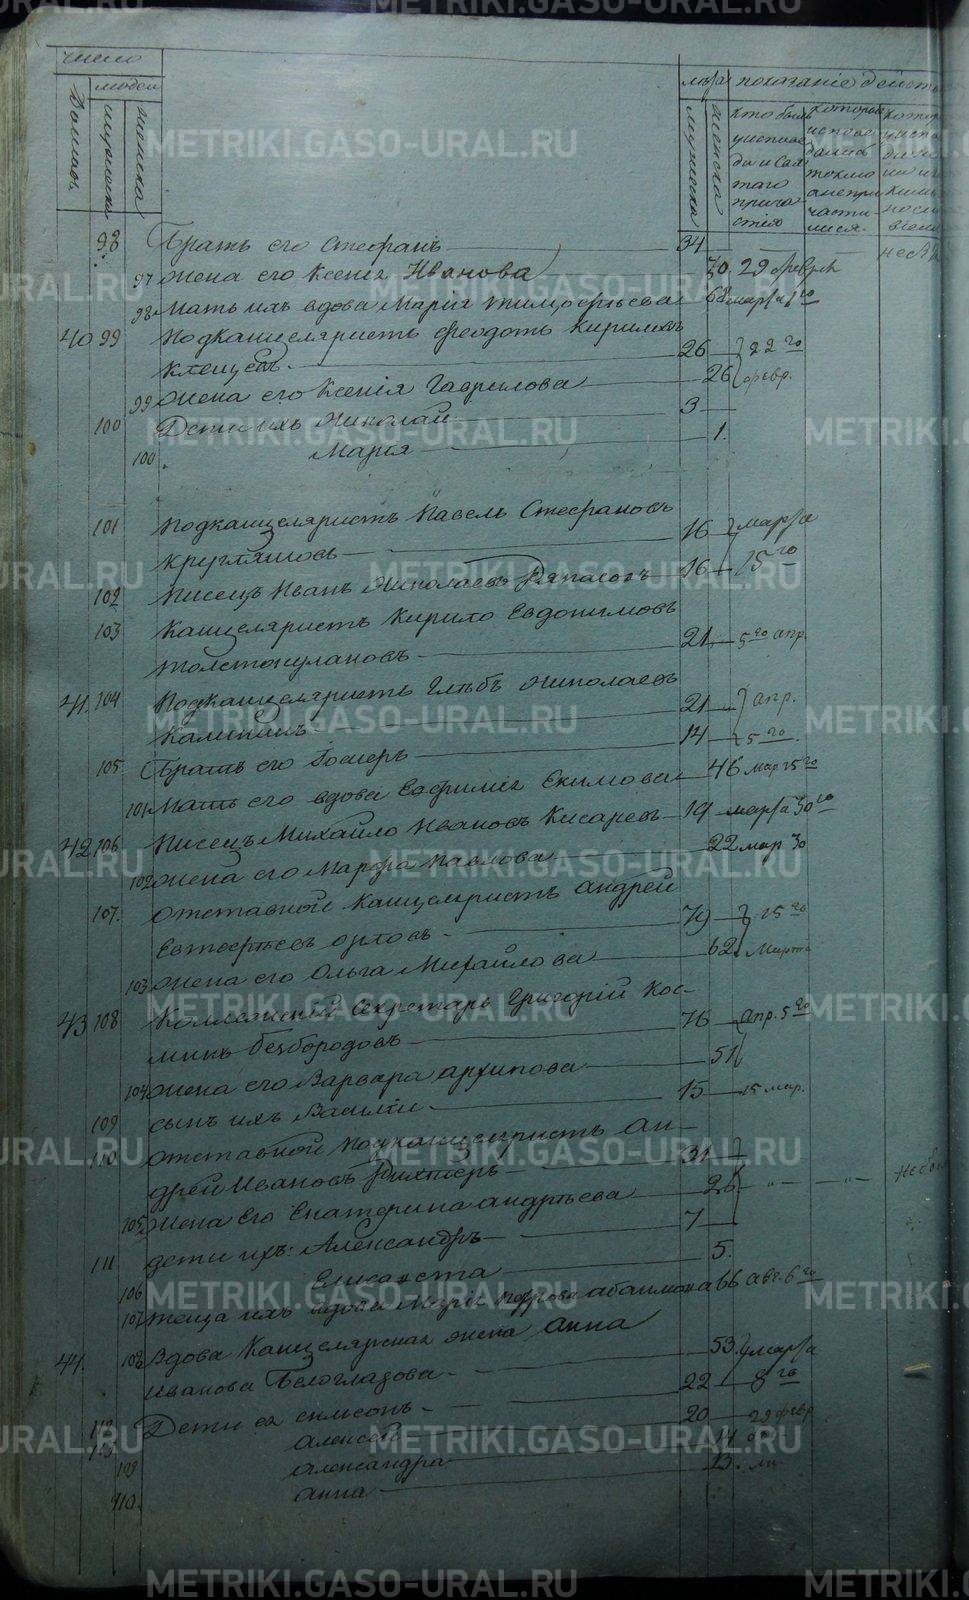 число
людей
лѣта показание дейст
Домовъ мужеска женска
мужеска женска кто былъ у исповеди и святаго причастия
которые исповедались токмо а не причастились
98 Братъ его Стефанъ 34
97 жена его Ксения Иванова 30 29 февра
98 Мать ихъ вдова Мария Тимофеева 68 марта 1го
40 99 Подканцеляристъ Феодотъ Кириловъ
26 22го
99 жена его Ксения Гаврилова 26 февр.
100 Дети ихъ Николай 3
100 Мария 1.
101 Подканцеляристъ Павелъ Стефановъ
Кругляшовъ 16 марта
102 Писецъ Иванъ Николаевъ 16 15го
103 Канцеляристъ Кирило Евдокимовъ
Толстокулаковъ 21 5го апр.
41. 104 Подканцеляристъ Глѣбъ Николаевъ
Калининъ 21 апр.
105 Братъ его 14 5го
101 Мать его вдова Евфимия Екимова 46 мар 25го
42 106 Писецъ Михайло Ивановъ Кисаревъ 19 марта 30го
102 жена его Марфа Павлова 22 мар 30
107. отставной Канцеляристъ андрей
Евтифеевъ орловъ 79 15го
103 жена его Ольга Михайлова 62 Марта
43 108 Коллежский Секретарь Григорий Кос-
минъ безбородовъ 76 апр. 5го
104 жена его Варвара архипова 51
109 сынъ ихъ Василий 15 15 мар.
110 отставной Подканцеляристъ ан-
дрей Ивановъ Рихтеръ 31
105 жена Его Екатерина андреева 26
111 дети ихъ: Александръ 7
106 Елисавета 5.
107 теща ихъ вдова Мария Петрова абаимова 66 авг. 6го
44. 108 Вдова Канцелярская жена анна
иванова Белоглазова 53. марта
112 Дети ея симеонъ 22 8го
113 алексей 20 29 февр
109 александра 14
110. анна 13.